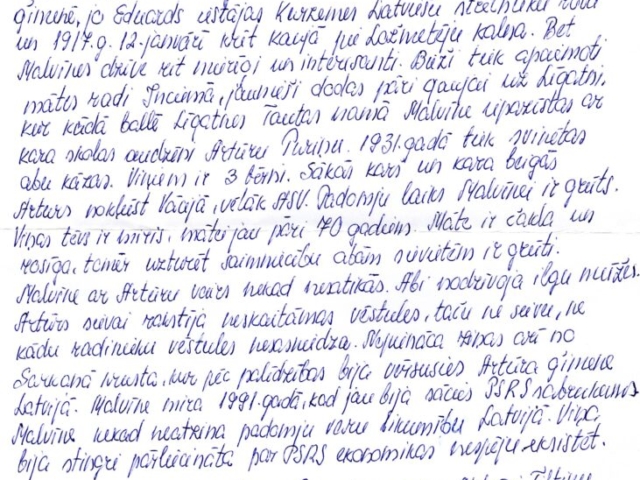 ģimenē, jo Eduards iestājas Kurzemes Latviešu strēlnieku
un 1917.g. 12.janvārī krīt kaujā pie Ložmetēju kalna. Bet
Malvīnes dzīve rit mierīgi un interesanti. Bieži tiek apciemoti
mātes radi Inciemā, jaunieši dodas pāri Gaujai uz Līgatni,
kur kādā ballē Līgatnes Tautas namā Malvīne iepazīstas ar
kara skolas audzēkni Artūru Puriņu. 1931.gadā tiek svinētas
abu kāzas. Viņiem ir 3 bērni. Sākās karš un kara beigās
Artūrs nokļūst Vācijā, vēlāk ASV. Padomju laiks Malvīnei ir grūts.
Viņas tēvs ir miris, mātei jau pāri 70 gadiem. Māte ir čakla un
rosīga, tomēr uzturēt saimniecību abām sievietēm ir grūti.
Malvīne ar Artūru vairs nekad nesatikās. Abi nodzīvoja ilgu mūžu.
Artūrs sievai rakstīja neskaitāmas vēstules, taču ne sievu, ne
kādu radinieku vēstules nesasniedza. Nepienāca ziņas arī no
Sarkanā krusta, kur pēc palīdzības bija vērsusies Artūra ģimene
Latvijā. Malvīne mira 1991.gadā, kad jau bija sācies PSRS sabrukums.
Malvīne nekad neatzina padomju varu likumību Latvijā. Viņa
bija stingri pārliecināta par PSRS ekonomikas nespēju eksistēt.